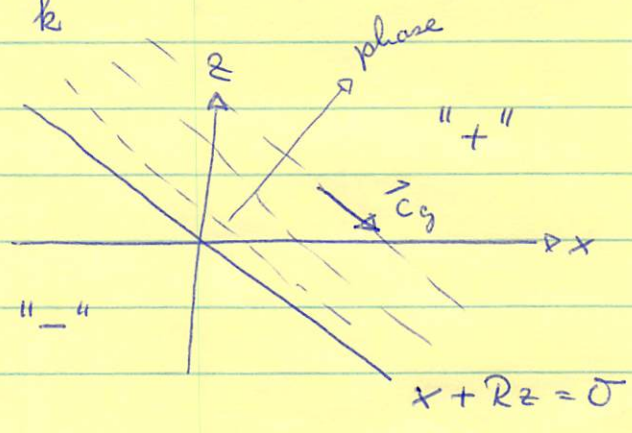 k
phase
z
"+"
c⃗g
x
"−"
x + Rz = 0